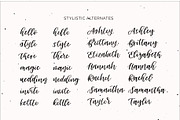 STYLISTIC ALTERNATES
hello hello Ashley Ashley
style style Brittany Brittany
there there Elizabeth Elizabeth
magic magic Hannah Hannah
wedding wedding Rachel Rachel
invite invite Samantha Samantha
hello hello Taylor Taylor